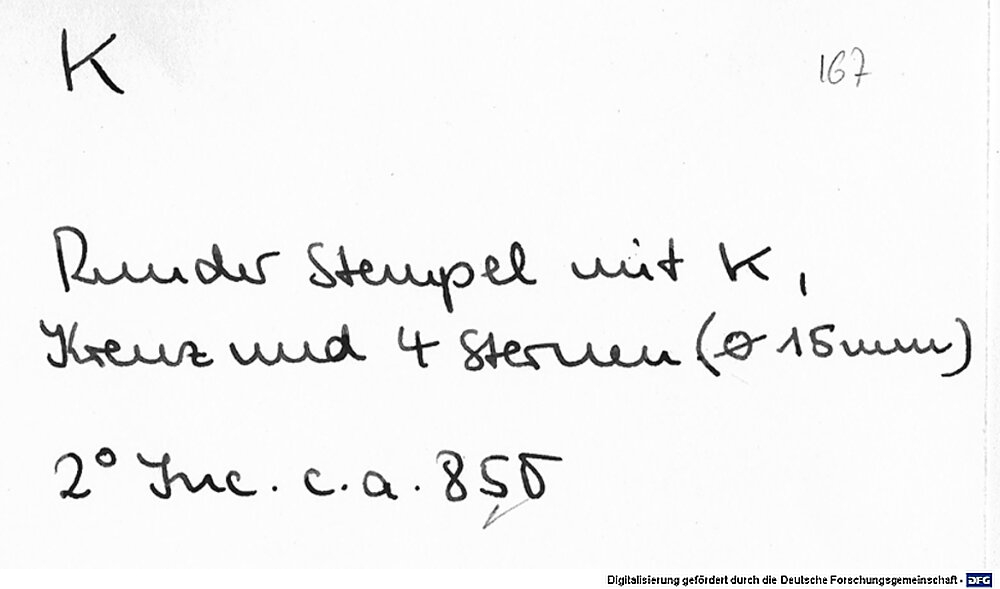 K
167
Runder Stempel mit K,
Kreuz und 4 Sternen (ø 15mm)
2° Inc. c.a. 850
Digitalisierung gefördert durch die Deutsche Forschungsgemeinschaft - DFG